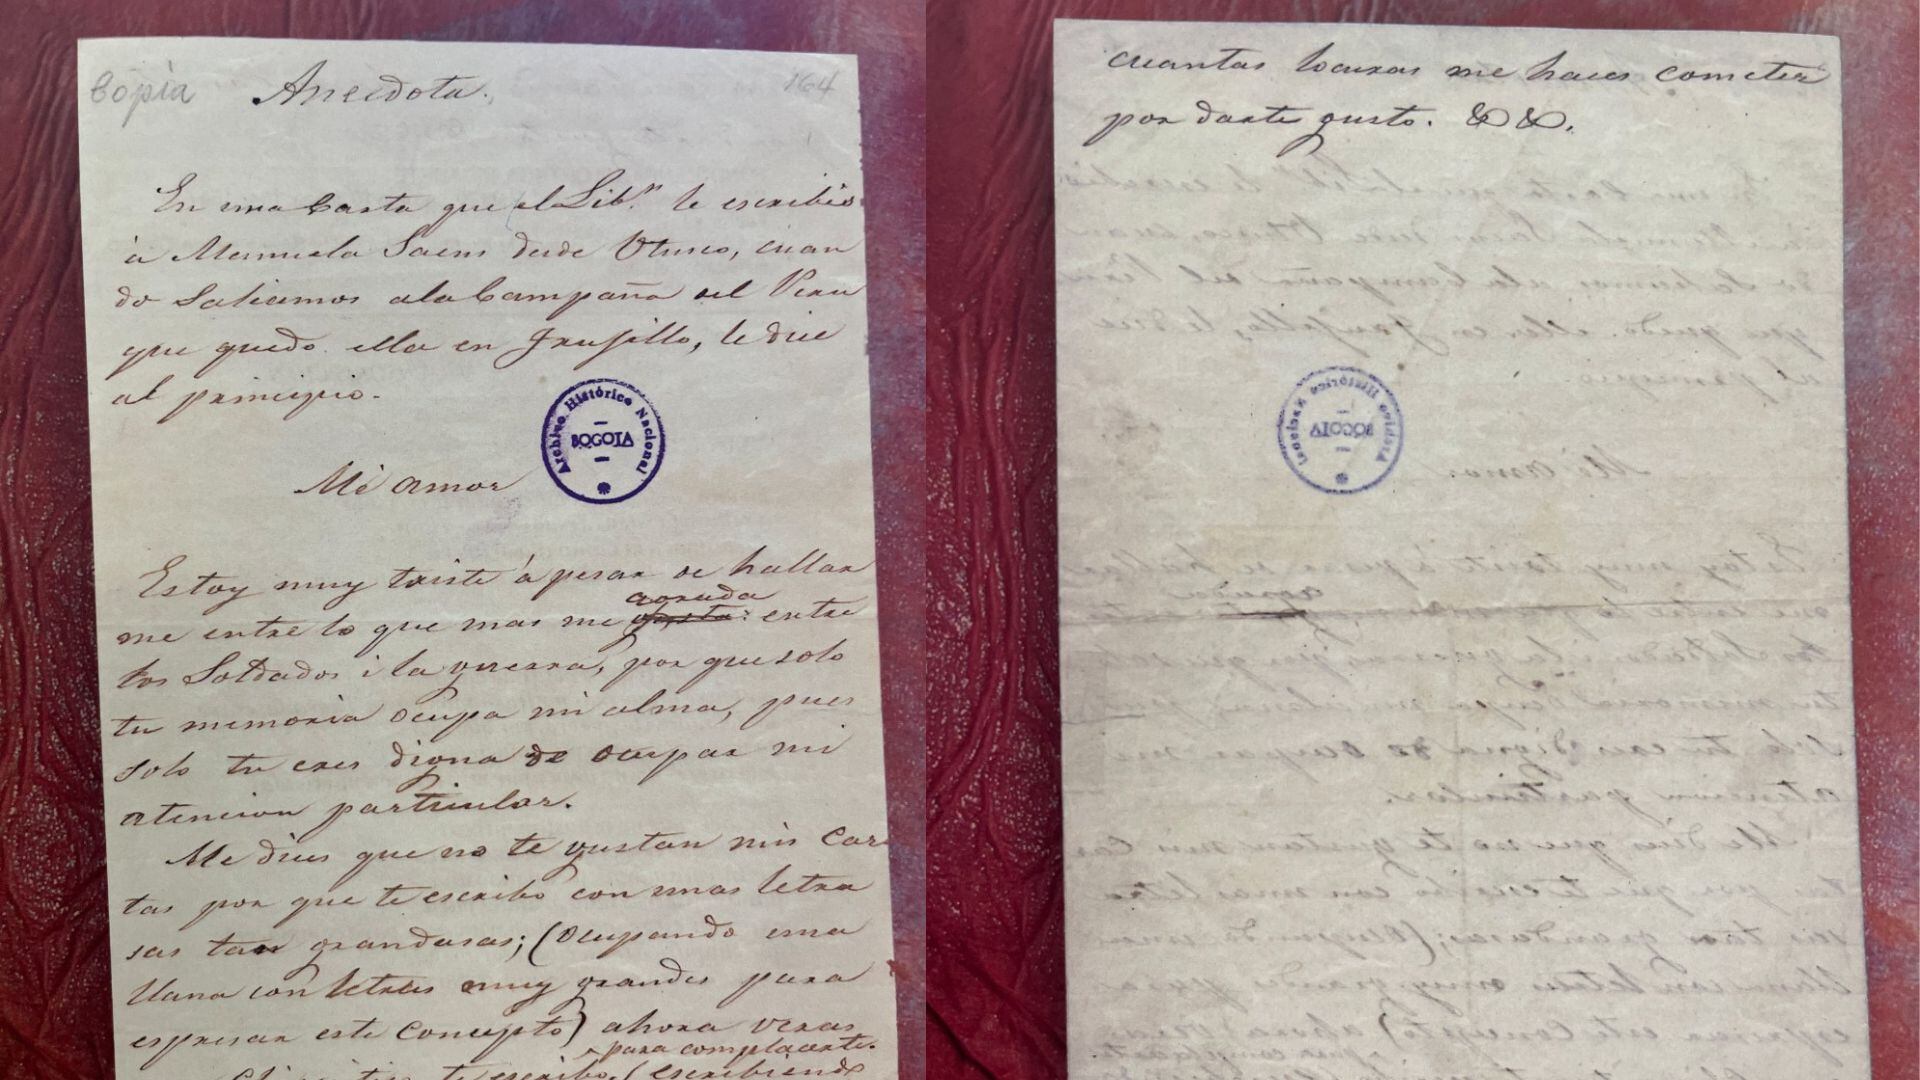 Copia
Anecdota.
164
En una Carta que el Lib.r le escribió
à Manuela Saens desde Otusco, cuan
do Saliamos ala Campaña del Peru
que quedo ella en Trujillo, le dice
al principio.
Archivo Histórico Nacional
BOGOTA
Mi amor
Estoy muy triste á pesar de hallar
agrada
me entre lo que mas me gusta: entre
los Soldados i la guerra, por que solo
tu memoria ocupa mi alma, pues
solo tu eres digna de ocupar mi
atencion particular.
Me dices que no te gustan mis Car
tas por que te escribo con unas letra
sas tan grandasas; (ocupando una
llana con letras muy grandes para
espresar este Concepto) ahora veras
para complacerte.
te escribo, (escribiendo
cuantas locuras me haces cometer
por darte gusto. &&.